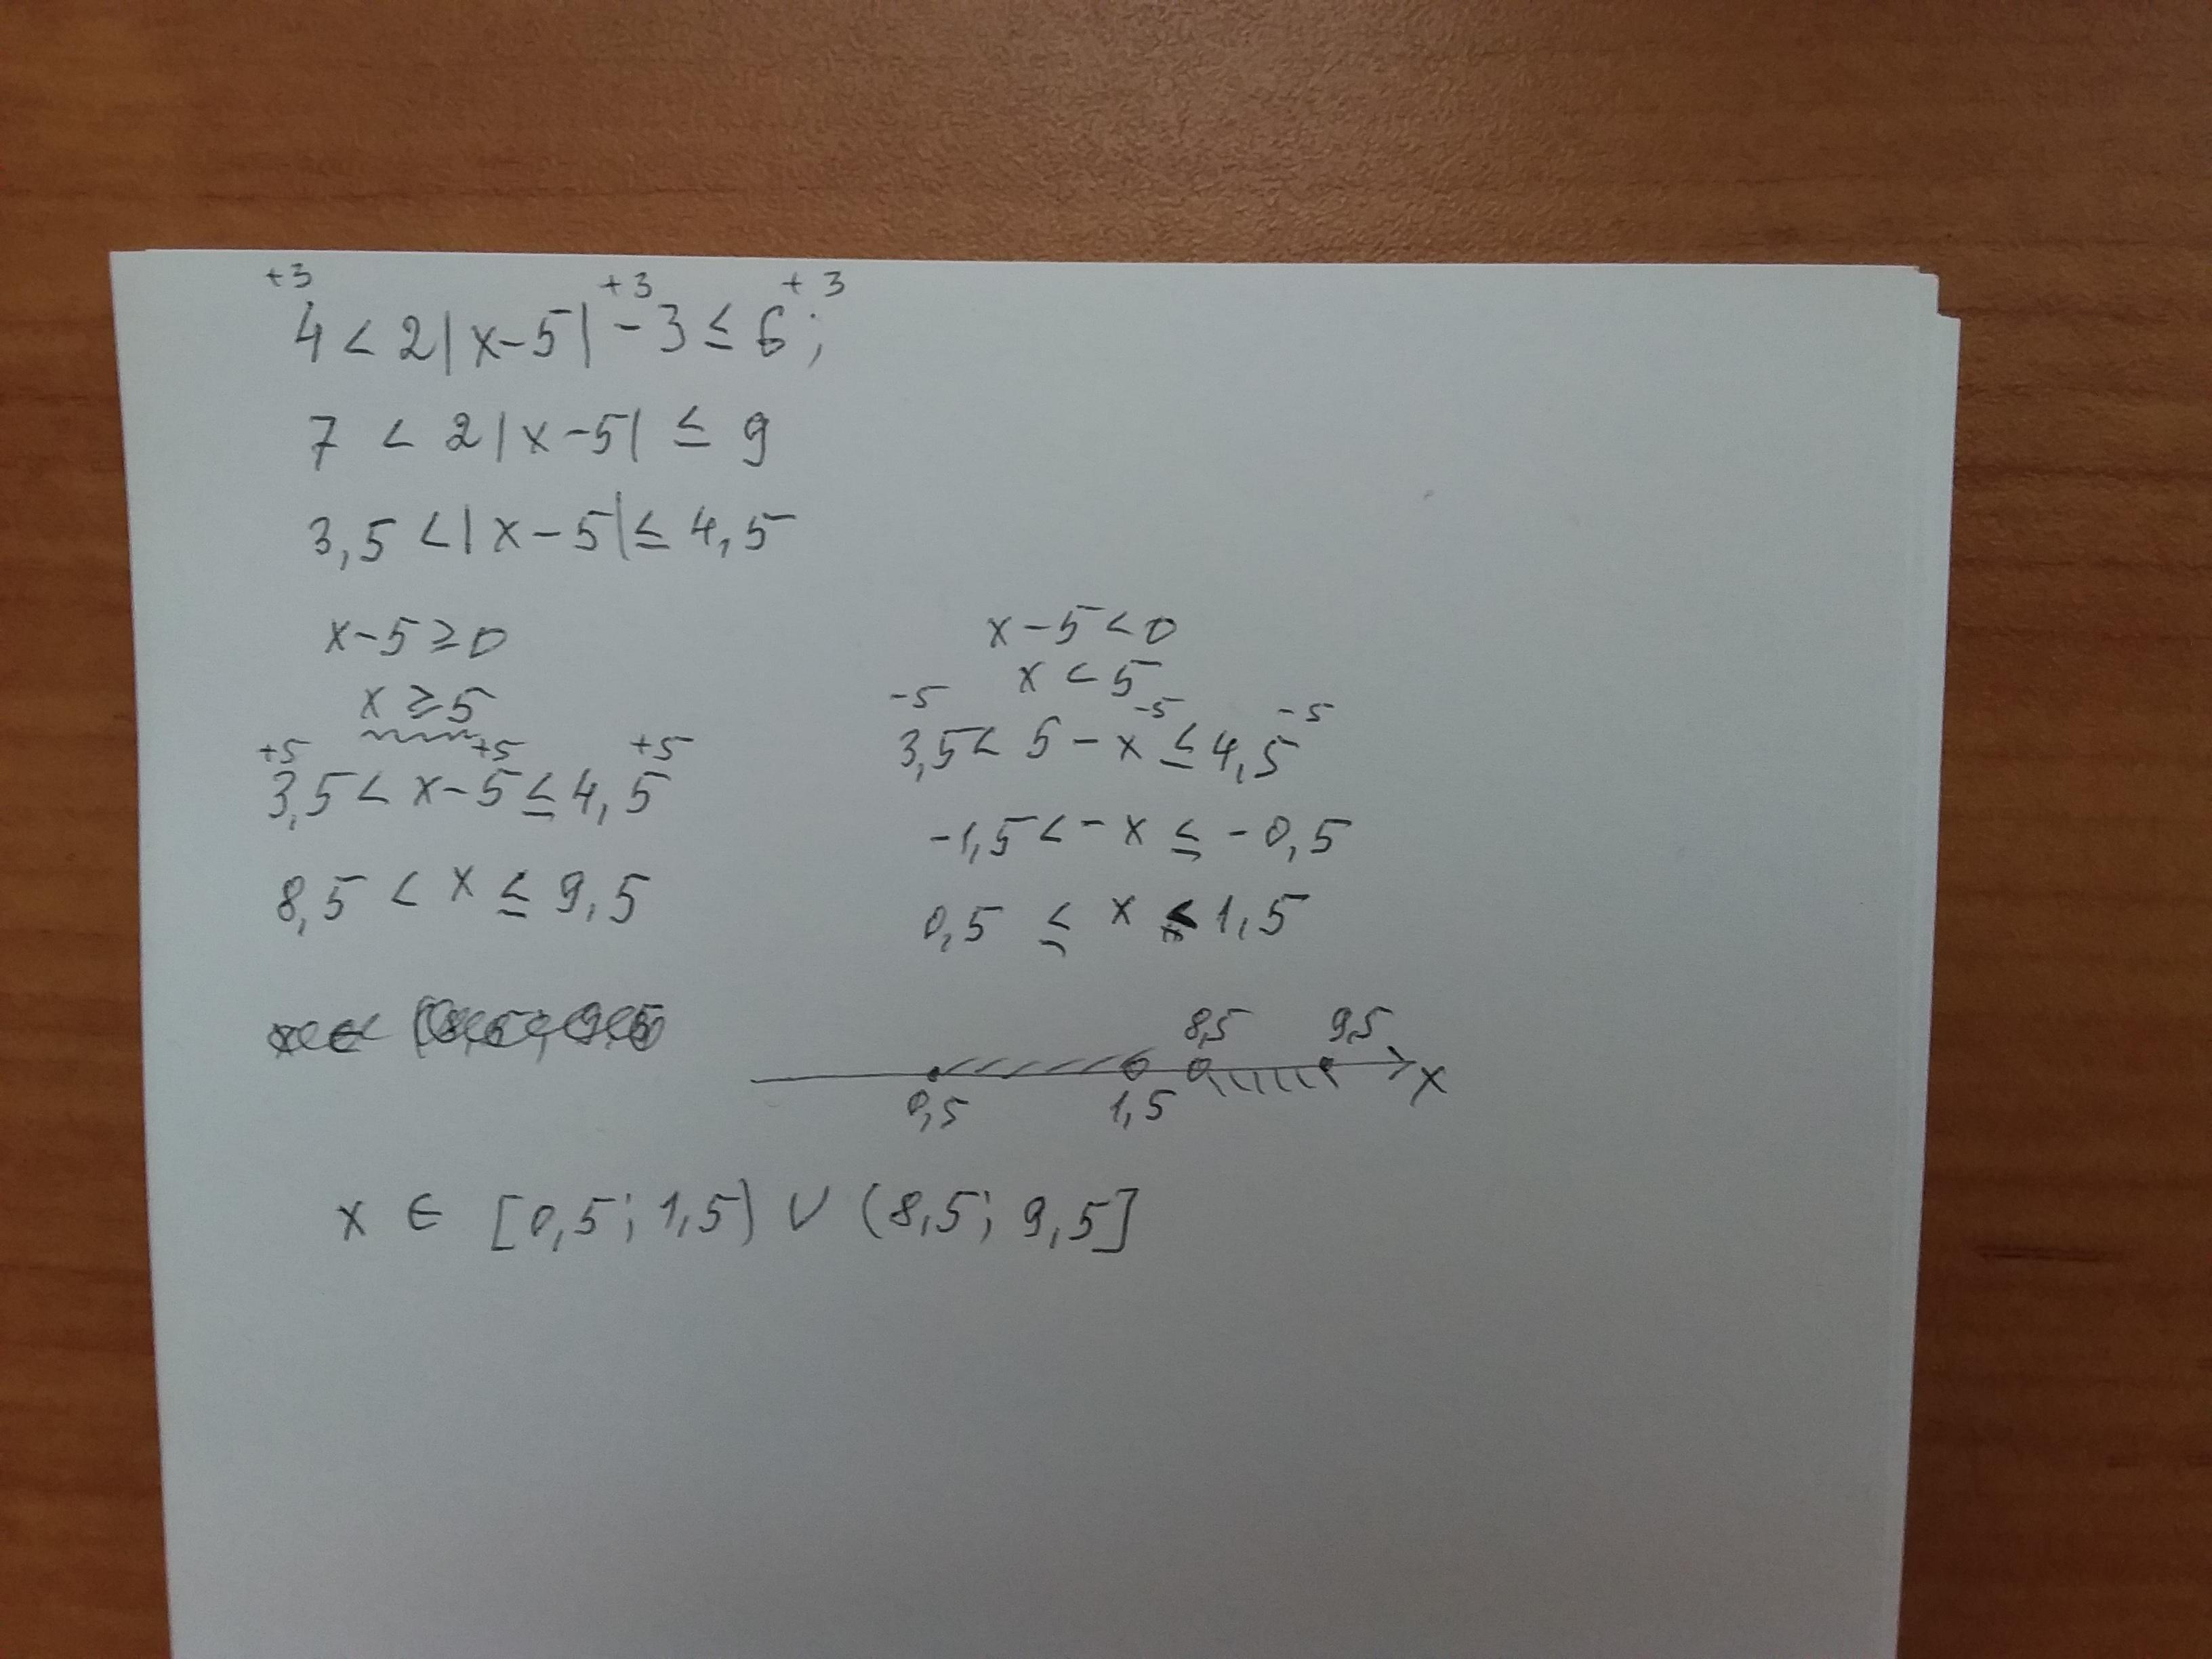 +3 +3 +3
4 < 2|x-5| - 3 ≤ 6;
7 < 2|x-5| ≤ 9
3,5 < |x-5| ≤ 4,5
x-5 ≥ 0
x ≥ 5
+5 +5 +5
3,5 < x-5 ≤ 4,5
8,5 < x ≤ 9,5
x-5 < 0
x < 5
-5 -5 -5
3,5 < 5-x ≤ 4,5
-1,5 < -x ≤ -0,5
0,5 ≤ x < 1,5
8,5 9,5
0,5 1,5 x
x ∈ [0,5; 1,5) ∪ (8,5; 9,5]